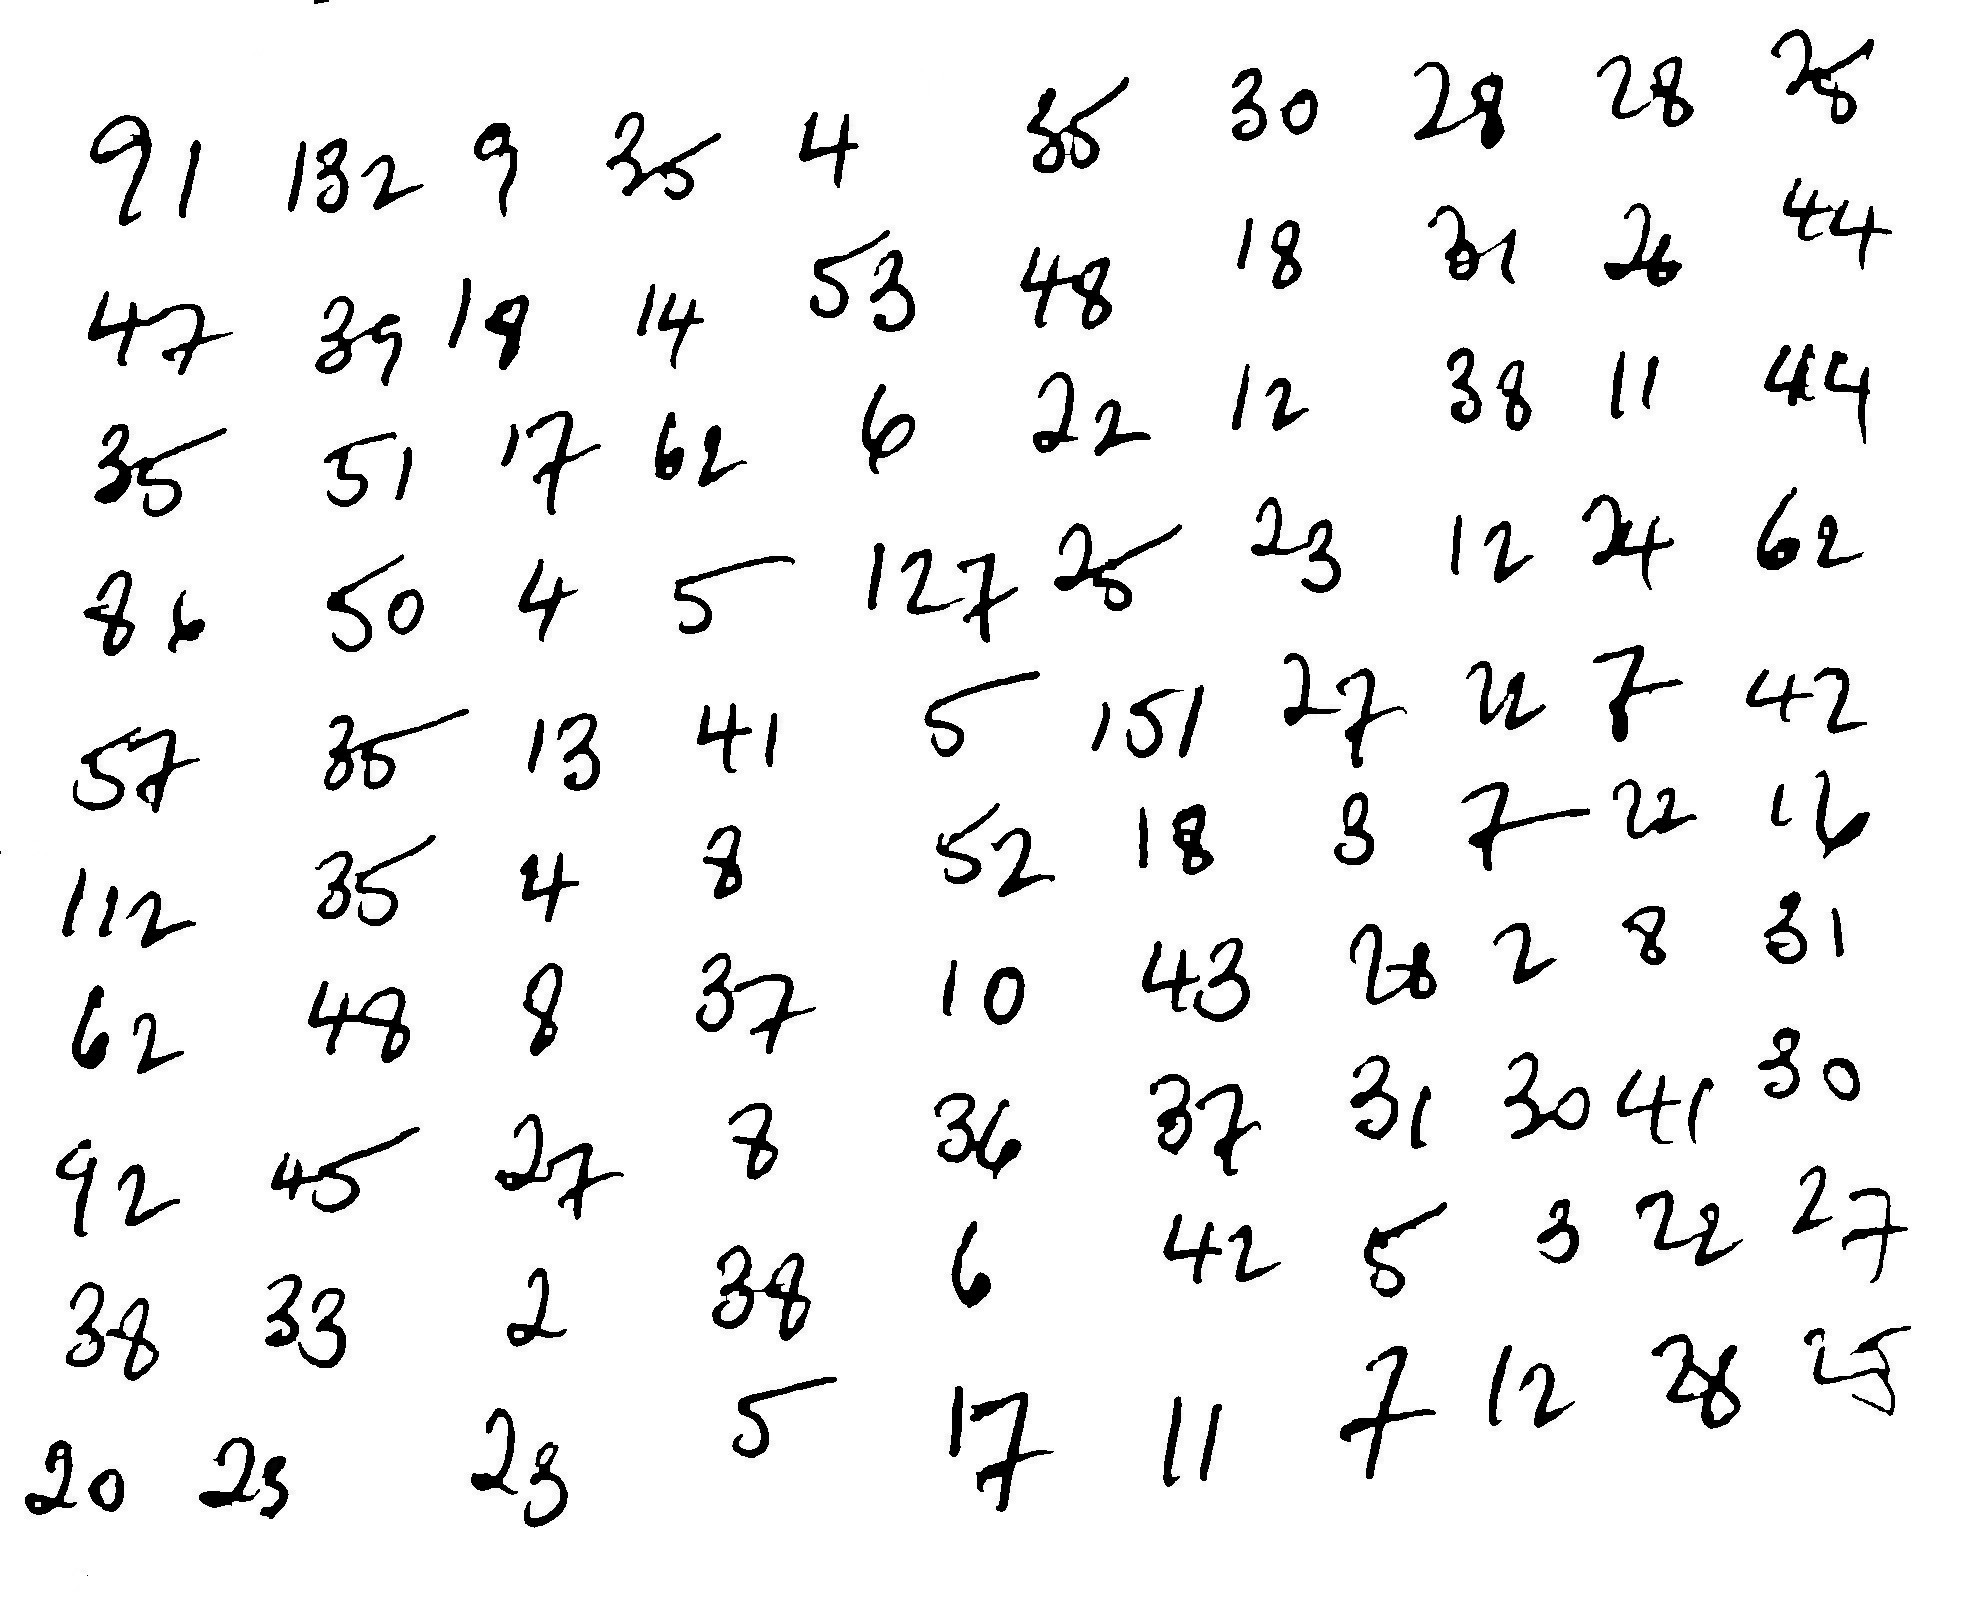 91 132 9 35 4 35 30 28 28 28
47 39 19 14 53 48 18 31 26 44
35 51 17 62 6 22 12 38 11 44
86 50 4 5 127 25 23 12 24 62
57 35 13 41 5 151 27 22 7 42
112 35 4 8 52 18 3 7 22 16
62 48 8 37 10 43 28 2 8 31
92 45 27 8 36 37 31 30 41 30
38 33 2 38 6 42 5 3 22 27
20 23 23 5 17 11 7 12 28 25